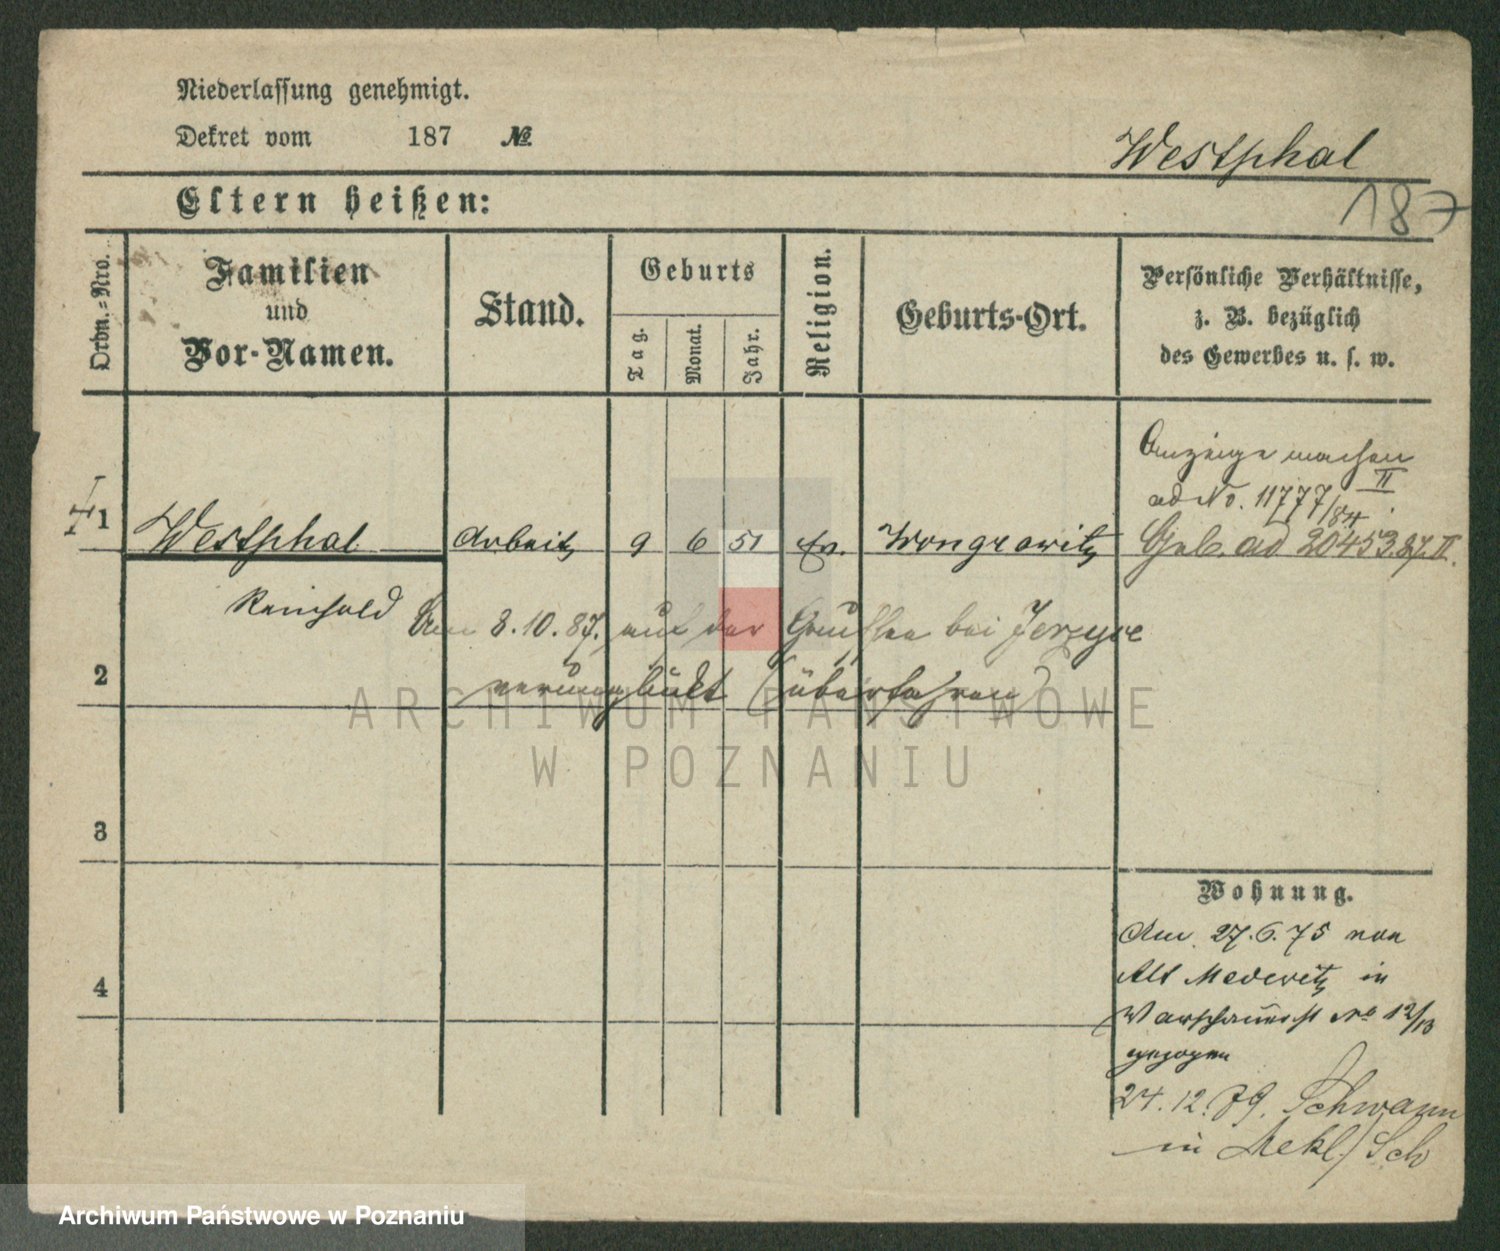 Niederlassung genehmigt.
Dekret vom 187 №
Westphal
187
Eltern heißen:
Ordn.-Nro.
Familien
und
Vor-Namen.
Stand.
Geburts
Tag.
Monat.
Jahr.
Religion.
Geburts-Ort.
Persönliche Verhältnisse,
z. B. bezüglich
des Gewerbes u. s. w.
Anzeige machen
ad No. 11777/84 II
1 Westphal Arbeit 9 6 51 ev. Wongrowitz ad 20453.87.II.
Reinhold
Am 8.10.87. auf der bei Jerzyce
2
verunglückt (überfahren)
3
Wohnung.
Am 27.6.75 von
4
Alt in
No 12/13
gezogen
24.12.79. Schwann
in Mekl/Sch
ARCHIWUM PAŃSTWOWE
W POZNANIU
Archiwum Państwowe w Poznaniu